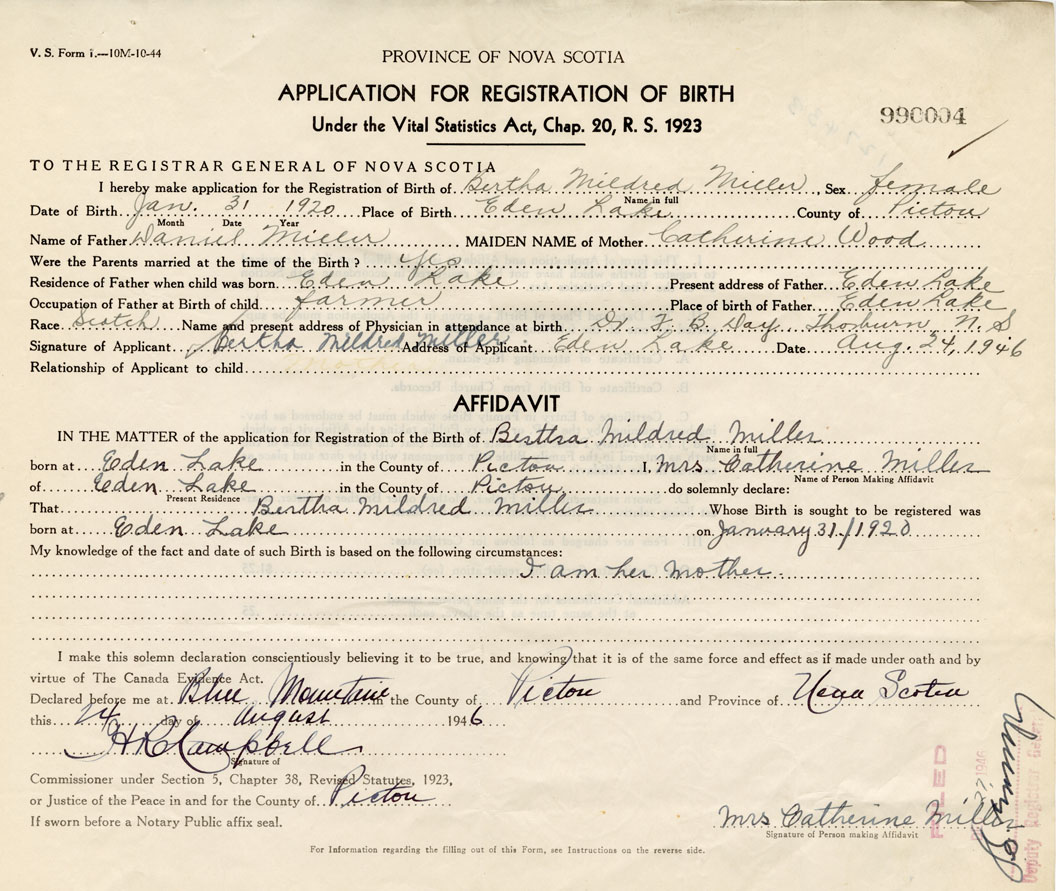 V. S. Form 1.—10M-10-44
PROVINCE OF NOVA SCOTIA
APPLICATION FOR REGISTRATION OF BIRTH
Under the Vital Statistics Act, Chap. 20, R. S. 1923
990004
TO THE REGISTRAR GENERAL OF NOVA SCOTIA
I hereby make application for the Registration of Birth of Bertha Mildred Miller, Sex female
Name in full
Date of Birth Jan. 31 1920 Place of Birth Eden Lake County of Pictou
Month Date Year
Name of Father Daniel Miller MAIDEN NAME of Mother Catherine Wood
Were the Parents married at the time of the Birth ? yes
Residence of Father when child was born Eden Lake Present address of Father Eden Lake
Occupation of Father at Birth of child farmer Place of birth of Father Eden Lake
Race Scotch Name and present address of Physician in attendance at birth Dr. F. B. Day, Thorburn, N. S
Signature of Applicant Bertha Mildred Miller Address of Applicant Eden Lake Date Aug. 24, 1946
Relationship of Applicant to child mother
AFFIDAVIT
IN THE MATTER of the application for Registration of the Birth of Bertha Mildred Miller
Name in full
born at Eden Lake in the County of Pictou I, Mrs Catherine Miller
Name of Person Making Affidavit
of Eden Lake in the County of Pictou do solemnly declare:
Present Residence
That Bertha Mildred Miller Whose Birth is sought to be registered was
born at Eden Lake on January 31/1920
My knowledge of the fact and date of such Birth is based on the following circumstances:
I am her mother
I make this solemn declaration conscientiously believing it to be true, and knowing that it is of the same force and effect as if made under oath and by
virtue of The Canada Evidence Act.
Declared before me at Blue Mountain in the County of Pictou and Province of Nova Scotia
this 24 day of August 1946
H R Campbell
Signature of
Commissioner under Section 5, Chapter 38, Revised Statutes, 1923,
or Justice of the Peace in and for the County of Pictou
If sworn before a Notary Public affix seal.
Mrs Catherine Miller
Signature of Person making Affidavit
For Information regarding the filling out of this Form, see Instructions on the reverse side.
FILED
27 1946
Deputy Registrar General